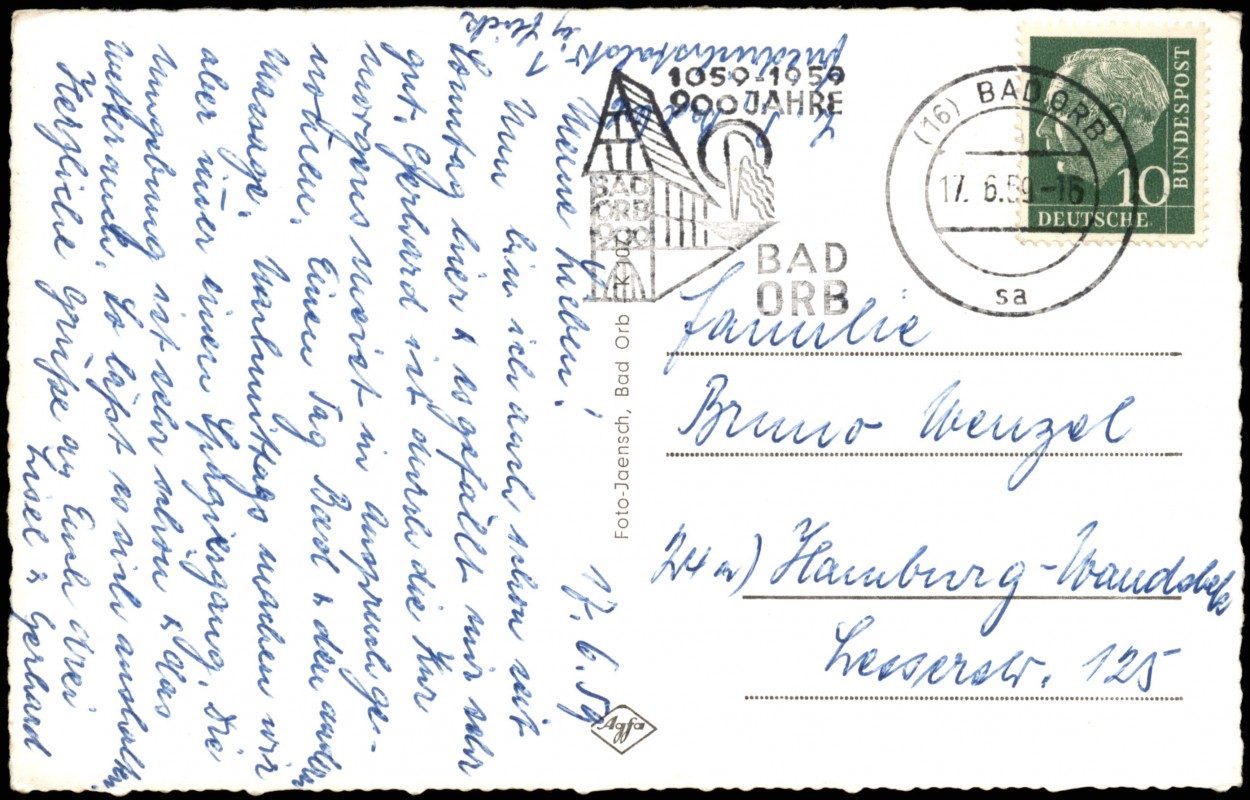 Meine Lieben!
17. 6. 59
Nun bin ich auch schon seit
Sonntag hier & es gefällt mir sehr
gut. Gerhard ist durch die Kur
morgens meist in Anspruch ge-
nommen. Einen Tag Bad & den andern
Massage. Nachmittags machen wir
aber immer einen Spaziergang. Die
Umgebung ist sehr schön & das
Wetter auch. So läßt es sich aushalten
Herzliche Grüße an Euch drei
Liesel & Gerhard
1059-1959
900 JAHRE
BAD
ORB
900
BAD
ORB
(16) BAD ORB
17. 6. 59-16
sa
BUNDESPOST
10
DEUTSCHE
K 107
Foto-Jaensch, Bad Orb
Agfa
Familie
Bruno Wenzel
24a) Hamburg-Wandsbek
Lesserstr. 125